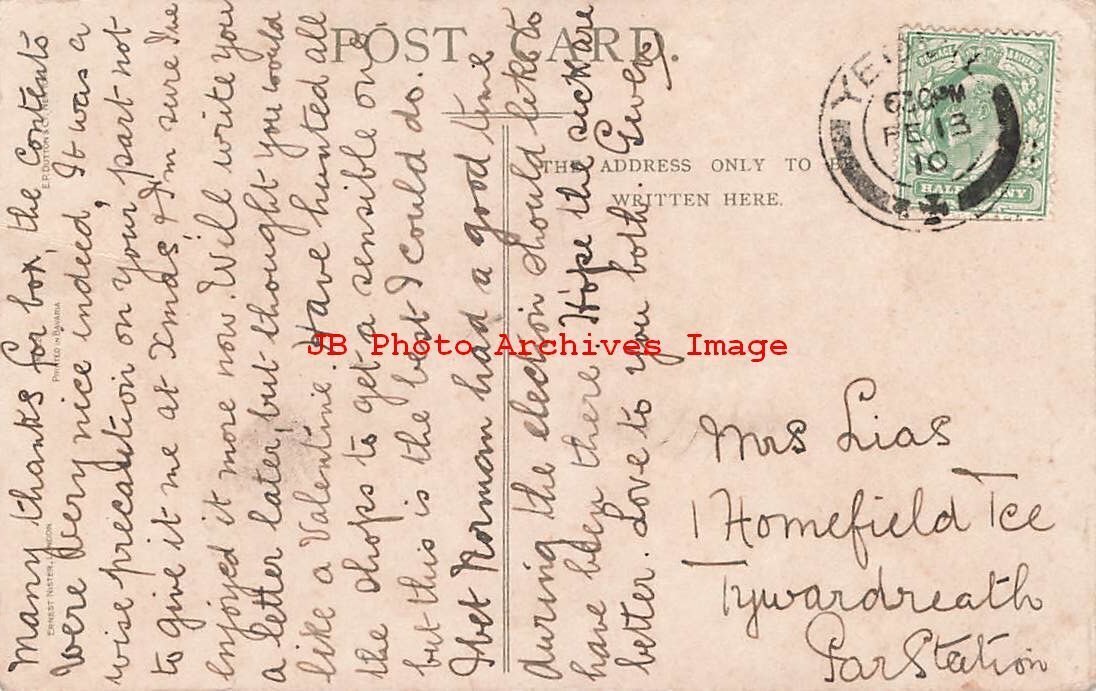 POST CARD.
THE ADDRESS ONLY TO BE
WRITTEN HERE.
630PM
FE 13
10
HALF PENNY
Many thanks for box, the contents
were very nice indeed, It was a
wise precaution on your part not
to give it me at Xmas, & I'm sure I've
enjoyed it more now. Will write you
a letter later, but thought you would
like a Valentine. Have hunted all
the shops to get a sensible one
but this is the best I could do.
I bet Norman had a good time
during the election should like to
have been there. Hope the sick are
better. Love to you both. Gwen
Mrs Lias
1 Homefield Tce
Tywardreath
Par Station
ERNEST NISTER, LONDON
PRINTED IN BAVARIA
E.P. DUTTON & CO., NEW YORK
JB Photo Archives Image